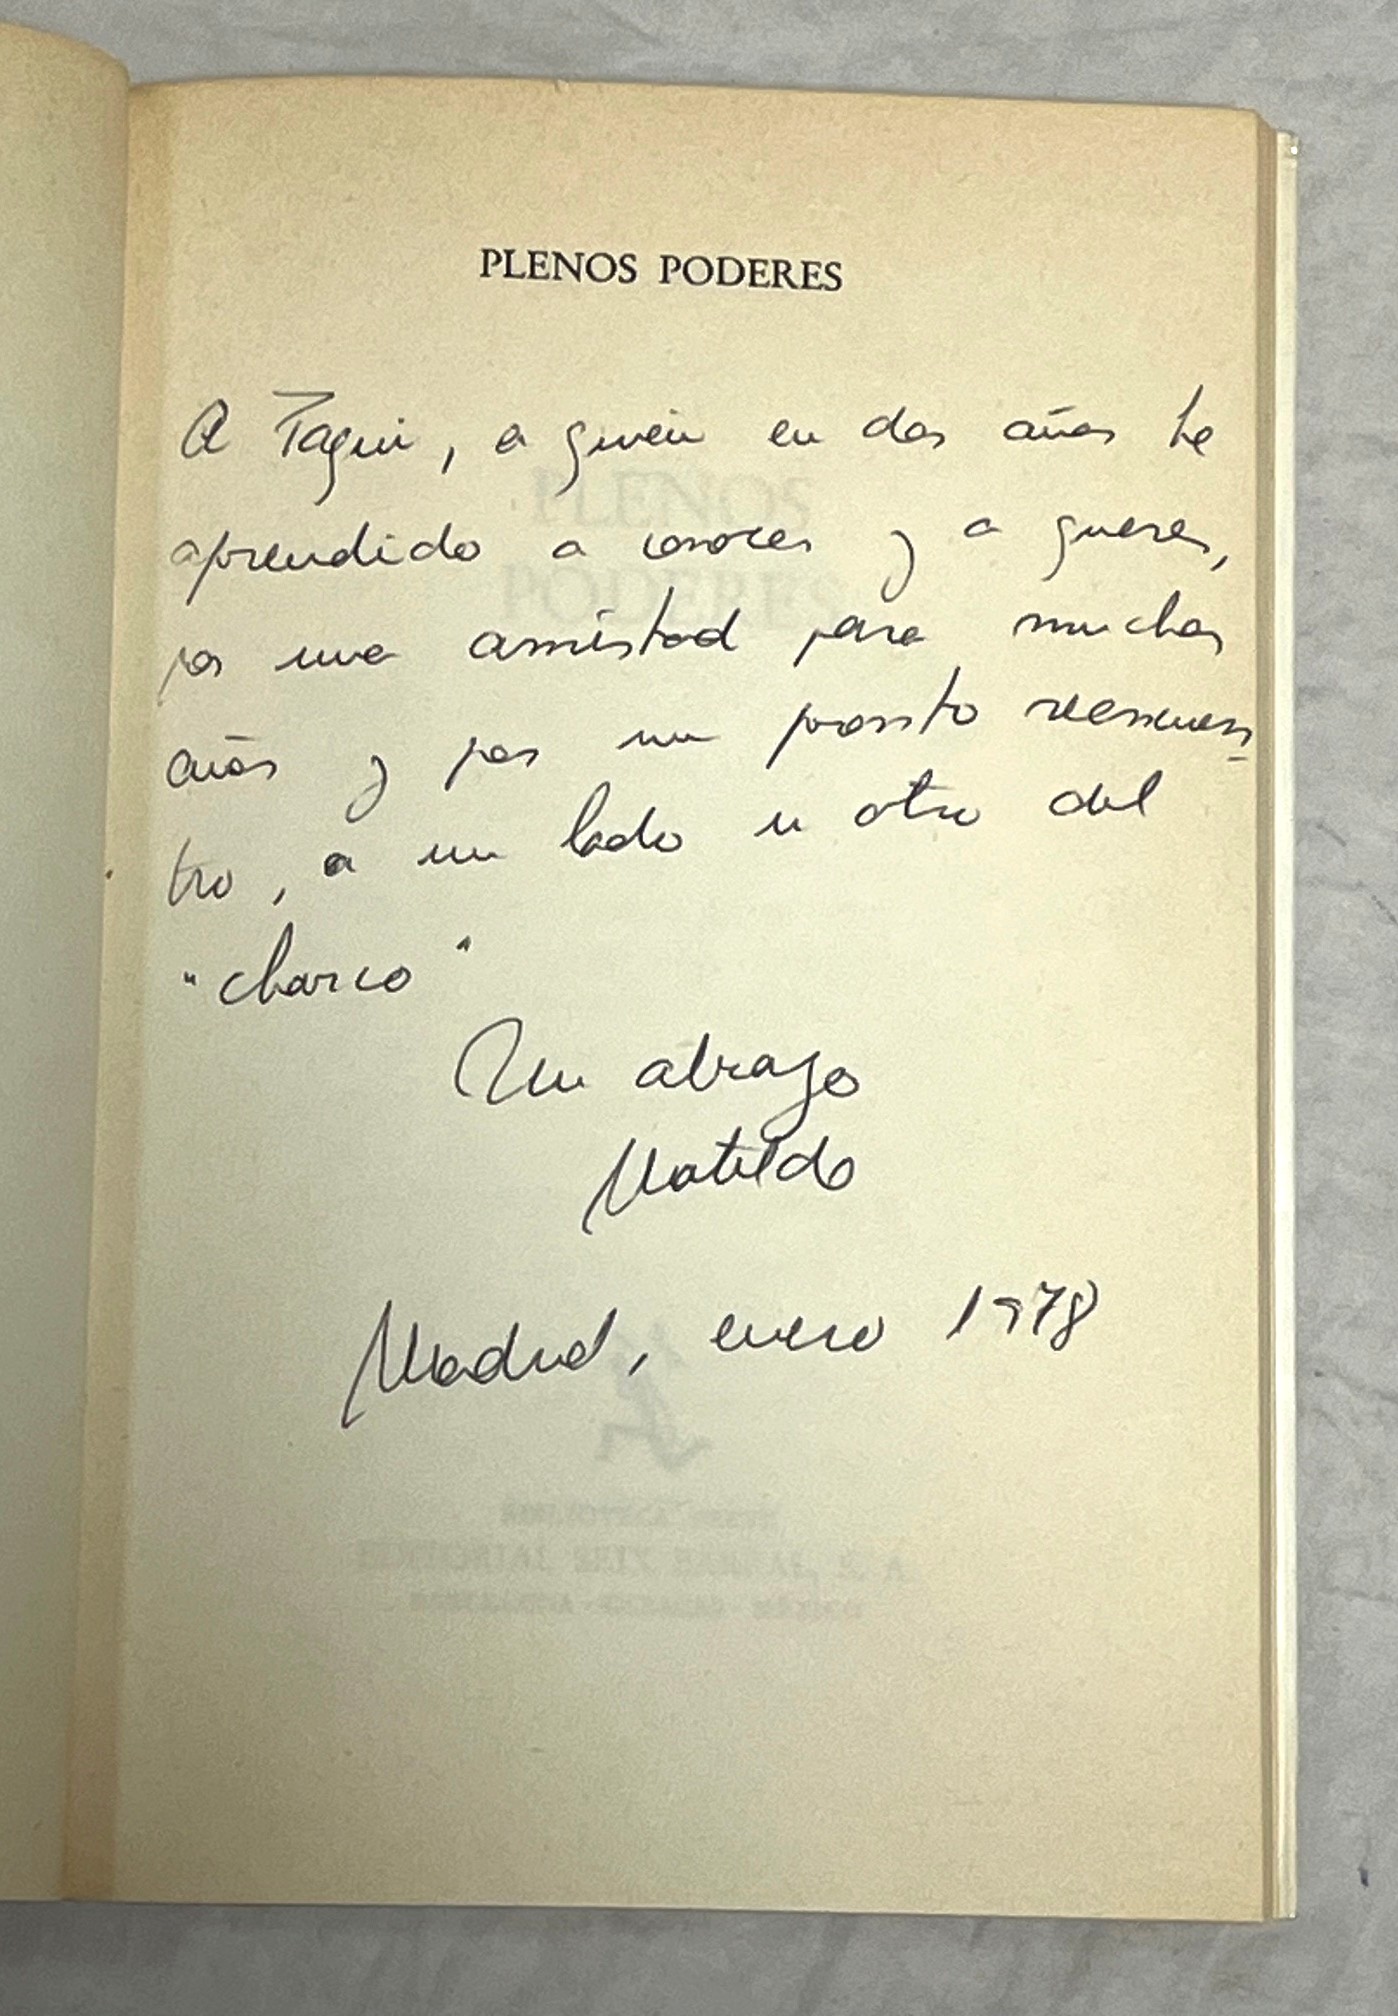 PLENOS PODERES
A Taqui, a quien en dos años he
aprendido a conocer y a querer,
por una amistad para muchos
años y por un pronto reencuen-
tro, a un lado u otro del
"charco"
Un abrazo
Matilde
Madrid, enero 1978
PLENOS
PODERES
BIBLIOTECA BREVE
EDITORIAL SEIX BARRAL, S. A.
BARCELONA - CARACAS - MÉXICO